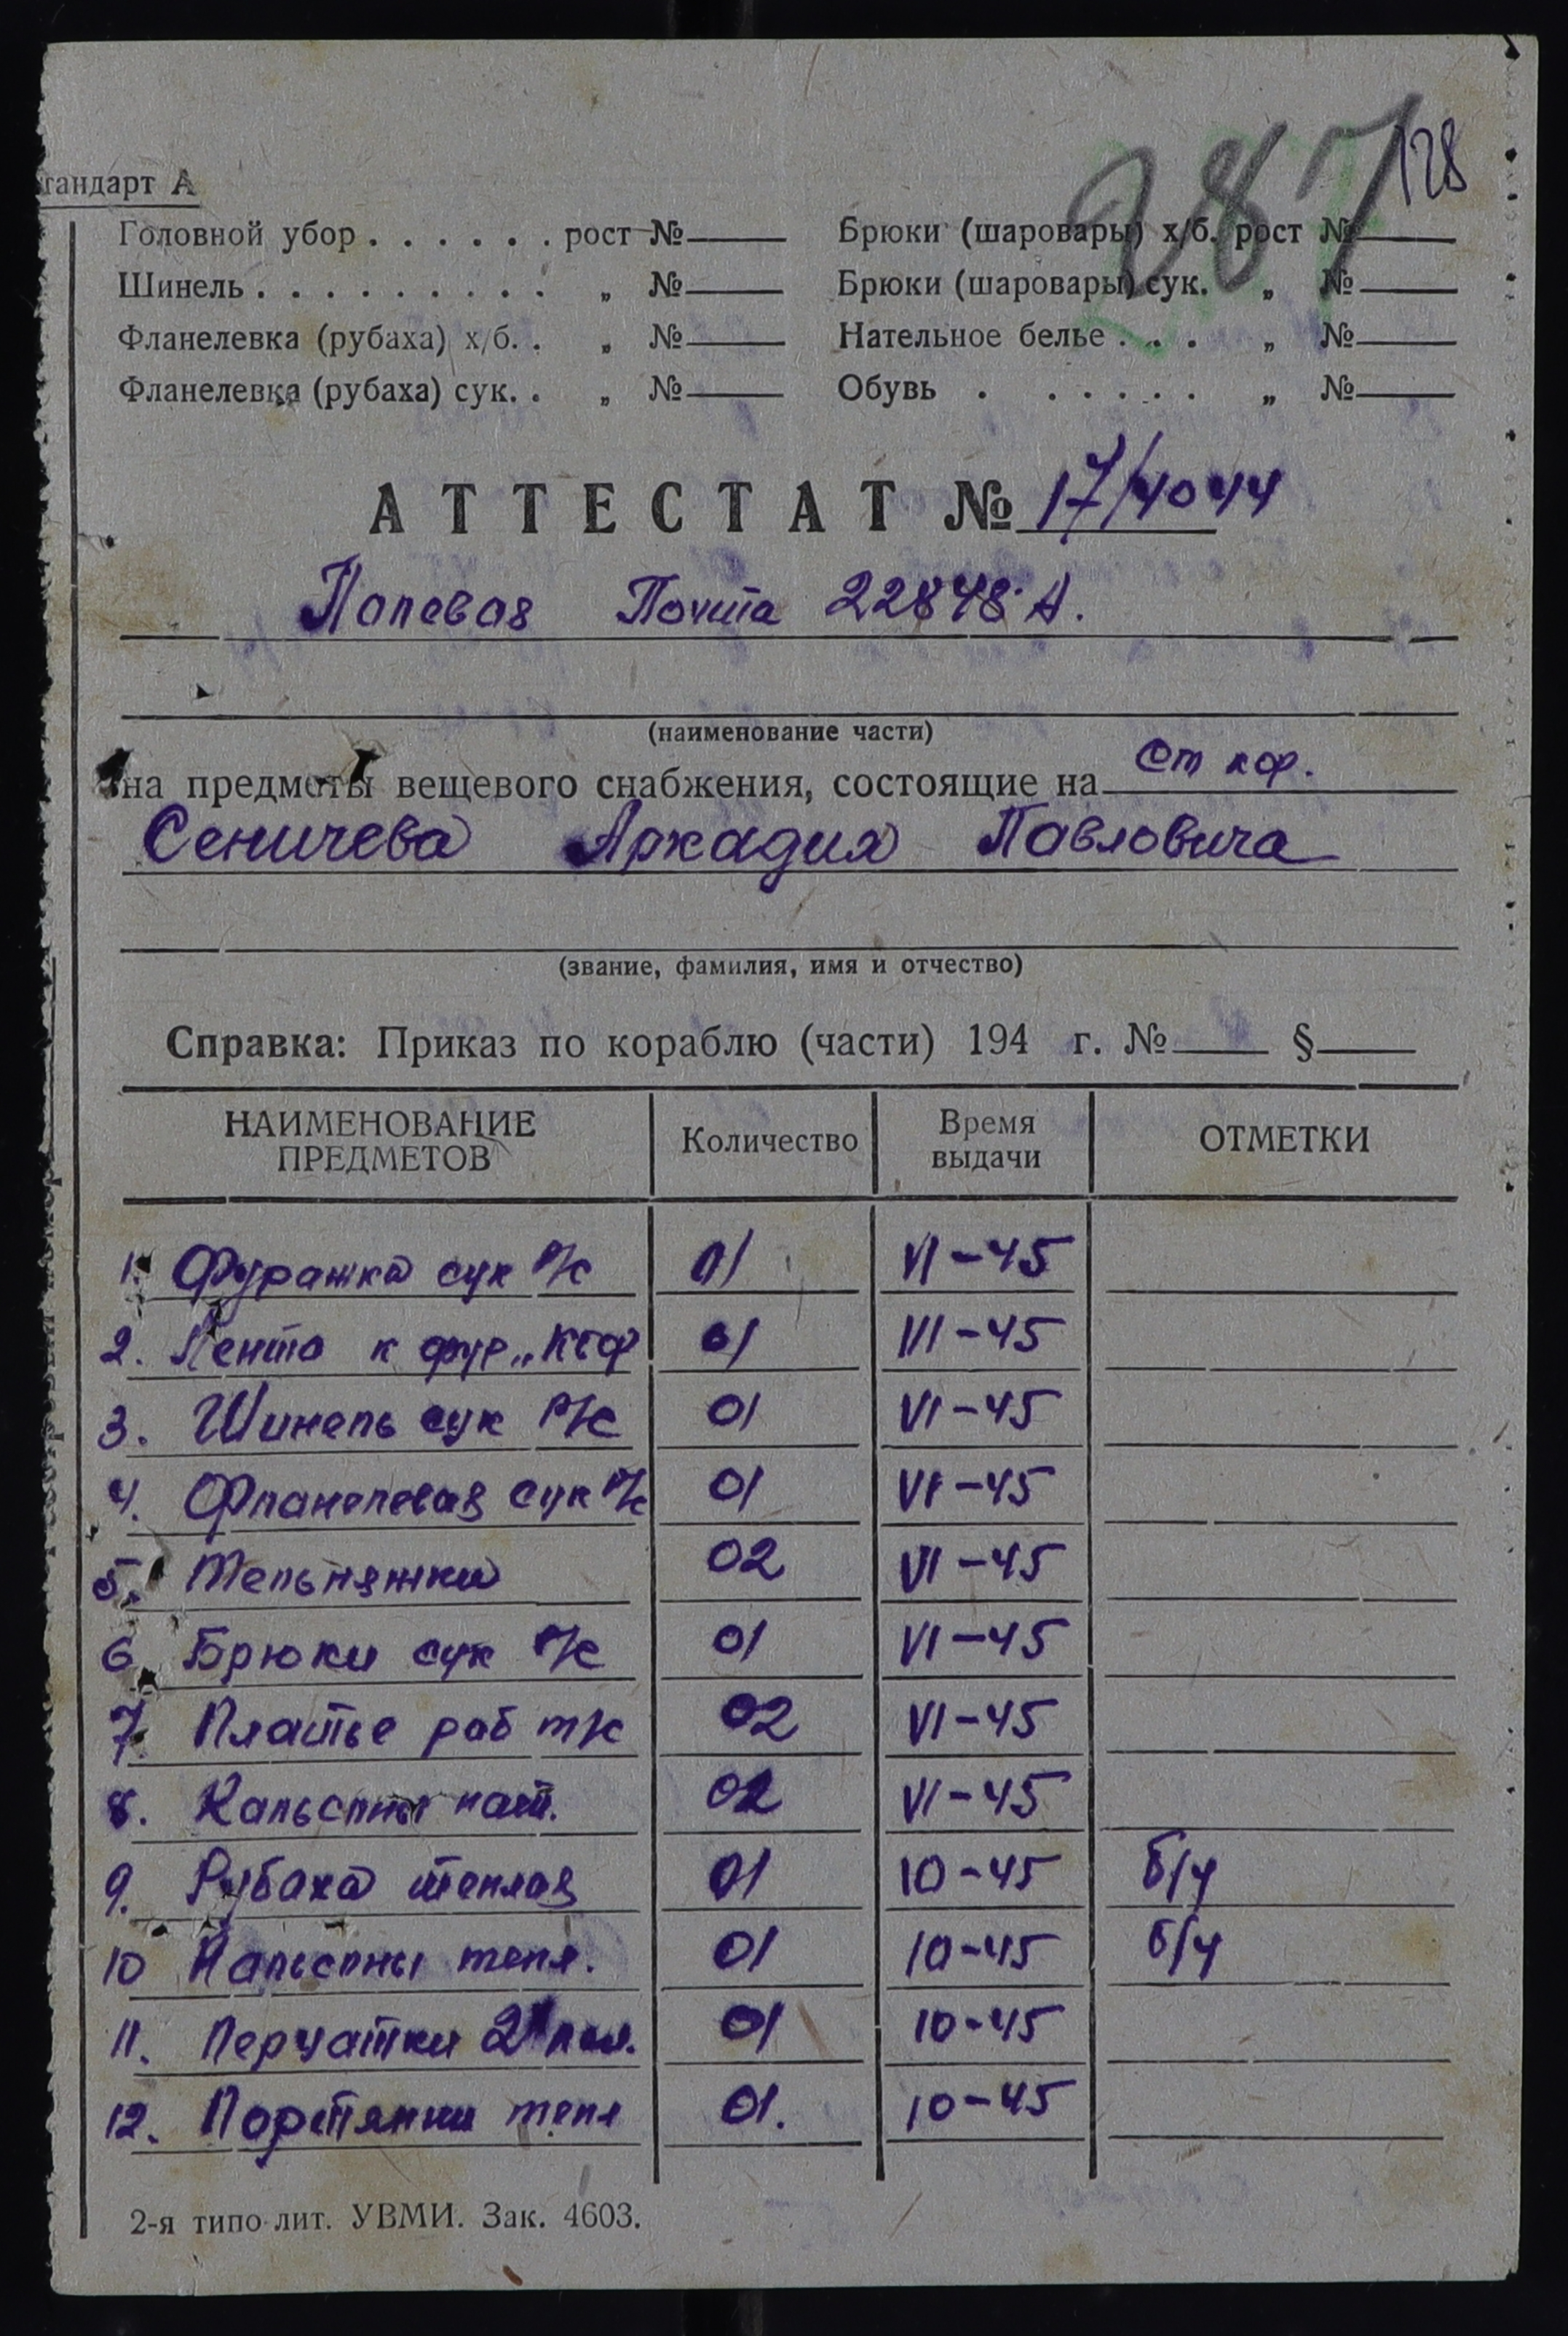 287 128
тандарт А
Головной убор . . . . . . рост № Брюки (шаровары) х/б. рост №
Шинель . . . . . . . . . . „ № Брюки (шаровары) сук. „ №
Фланелевка (рубаха) х/б. . „ № Нательное белье . . . „ №
Фланелевка (рубаха) сук. . „ № Обувь . . . . . . „ №
АТТЕСТАТ № 17/4044
Полевая Почта 22848·А.
(наименование части)
на предметы вещевого снабжения, состоящие на ст кор.
Сеничева Аркадия Павловича
(звание, фамилия, имя и отчество)
Справка: Приказ по кораблю (части) 194 г. № §
НАИМЕНОВАНИЕ ПРЕДМЕТОВ Количество Время выдачи ОТМЕТКИ
1. Фуражка сук р/с 01 VI-45
2. Лента к фур „КБФ 01 VII-45
3. Шинель сук р/с 01 VI-45
4. Фланелевая сук р/с 01 VI-45
5. Тельняжки 02 VI-45
6. Брюки сук р/с 01 VI-45
7. Платье раб 02 VI-45
8. Кальсоны нат. 02 VI-45
9. Рубаха теплая 01 10-45 б/у
10 Кальсоны тепл. 01 10-45 б/у
11. Перчатки 2х пал. 01 10-45
12. Портянки тепл 01. 10-45
2-я типо-лит. УВМИ. Зак. 4603.